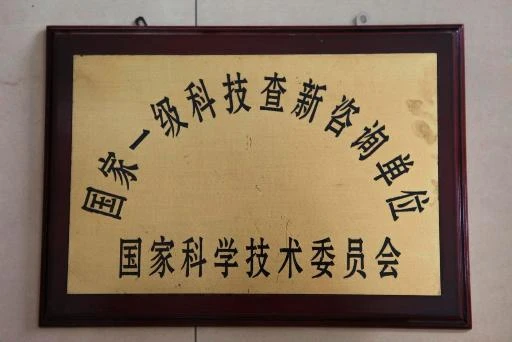 国家一级科技查新咨询单位
国家科学技术委员会